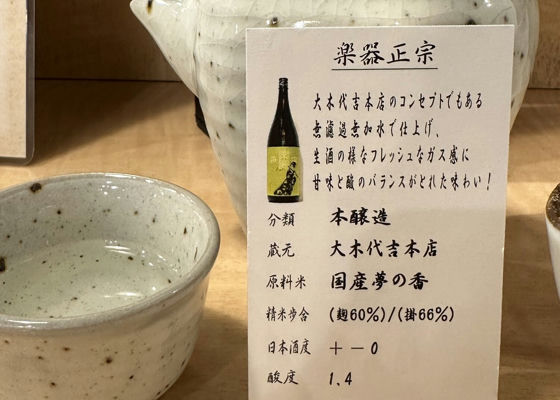 楽器正宗
大木代吉本店のコンセプトでもある
無濾過無加水で仕上げ、
生酒の様なフレッシュなガス感に
甘味と酸のバランスがとれた味わい!
分類 本醸造
蔵元 大木代吉本店
原料米 国産夢の香
精米歩合 (麹60%)/(掛66%)
日本酒度 +-0
酸度 1.4